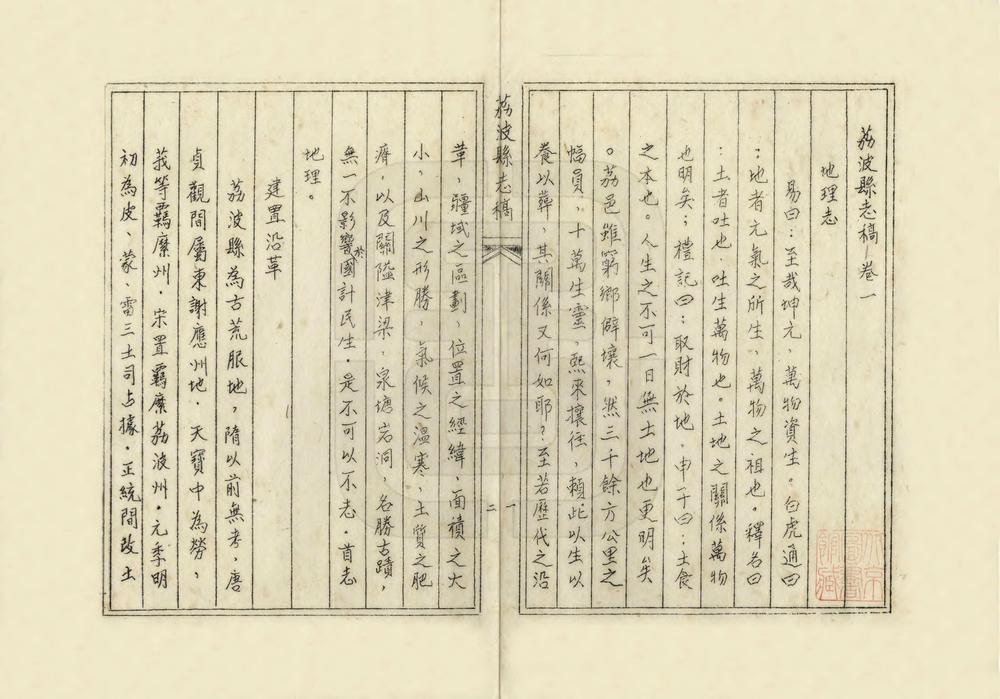 荔波縣志稿卷一
地理志
易曰：至哉坤元，萬物資生。白虎通曰
：地者元氣之所生，萬物之祖也。釋名曰
：土者吐也，吐生萬物也。土地之關係萬物
也明矣；禮記曰：取財於地，申千曰：土食
之本也。人生之不可一日無土地也更明矣
。荔邑雖窮鄉僻壤，然三千餘方公里之
幅員，十萬生靈，熙來攘往，賴此以生以
養以葬，其關係又何如耶？至若歷代之沿
荔波縣志稿
一
二
革，疆域之區劃，位置之經緯，面積之大
小，山川之形勝，氣候之溫寒，土質之肥
瘠，以及關隘津梁，泉塘岩洞，名勝古蹟，
無一不影響於國計民生，是不可以不志。首志
地理。
建置沿革
荔波縣為古荒服地，隋以前無考，唐
貞觀間屬東謝應州地，天寶中為勞，
莪等羈縻州，宋置羈縻荔波州。元季明
初為皮、蒙、雷三土司占據。正統間改土